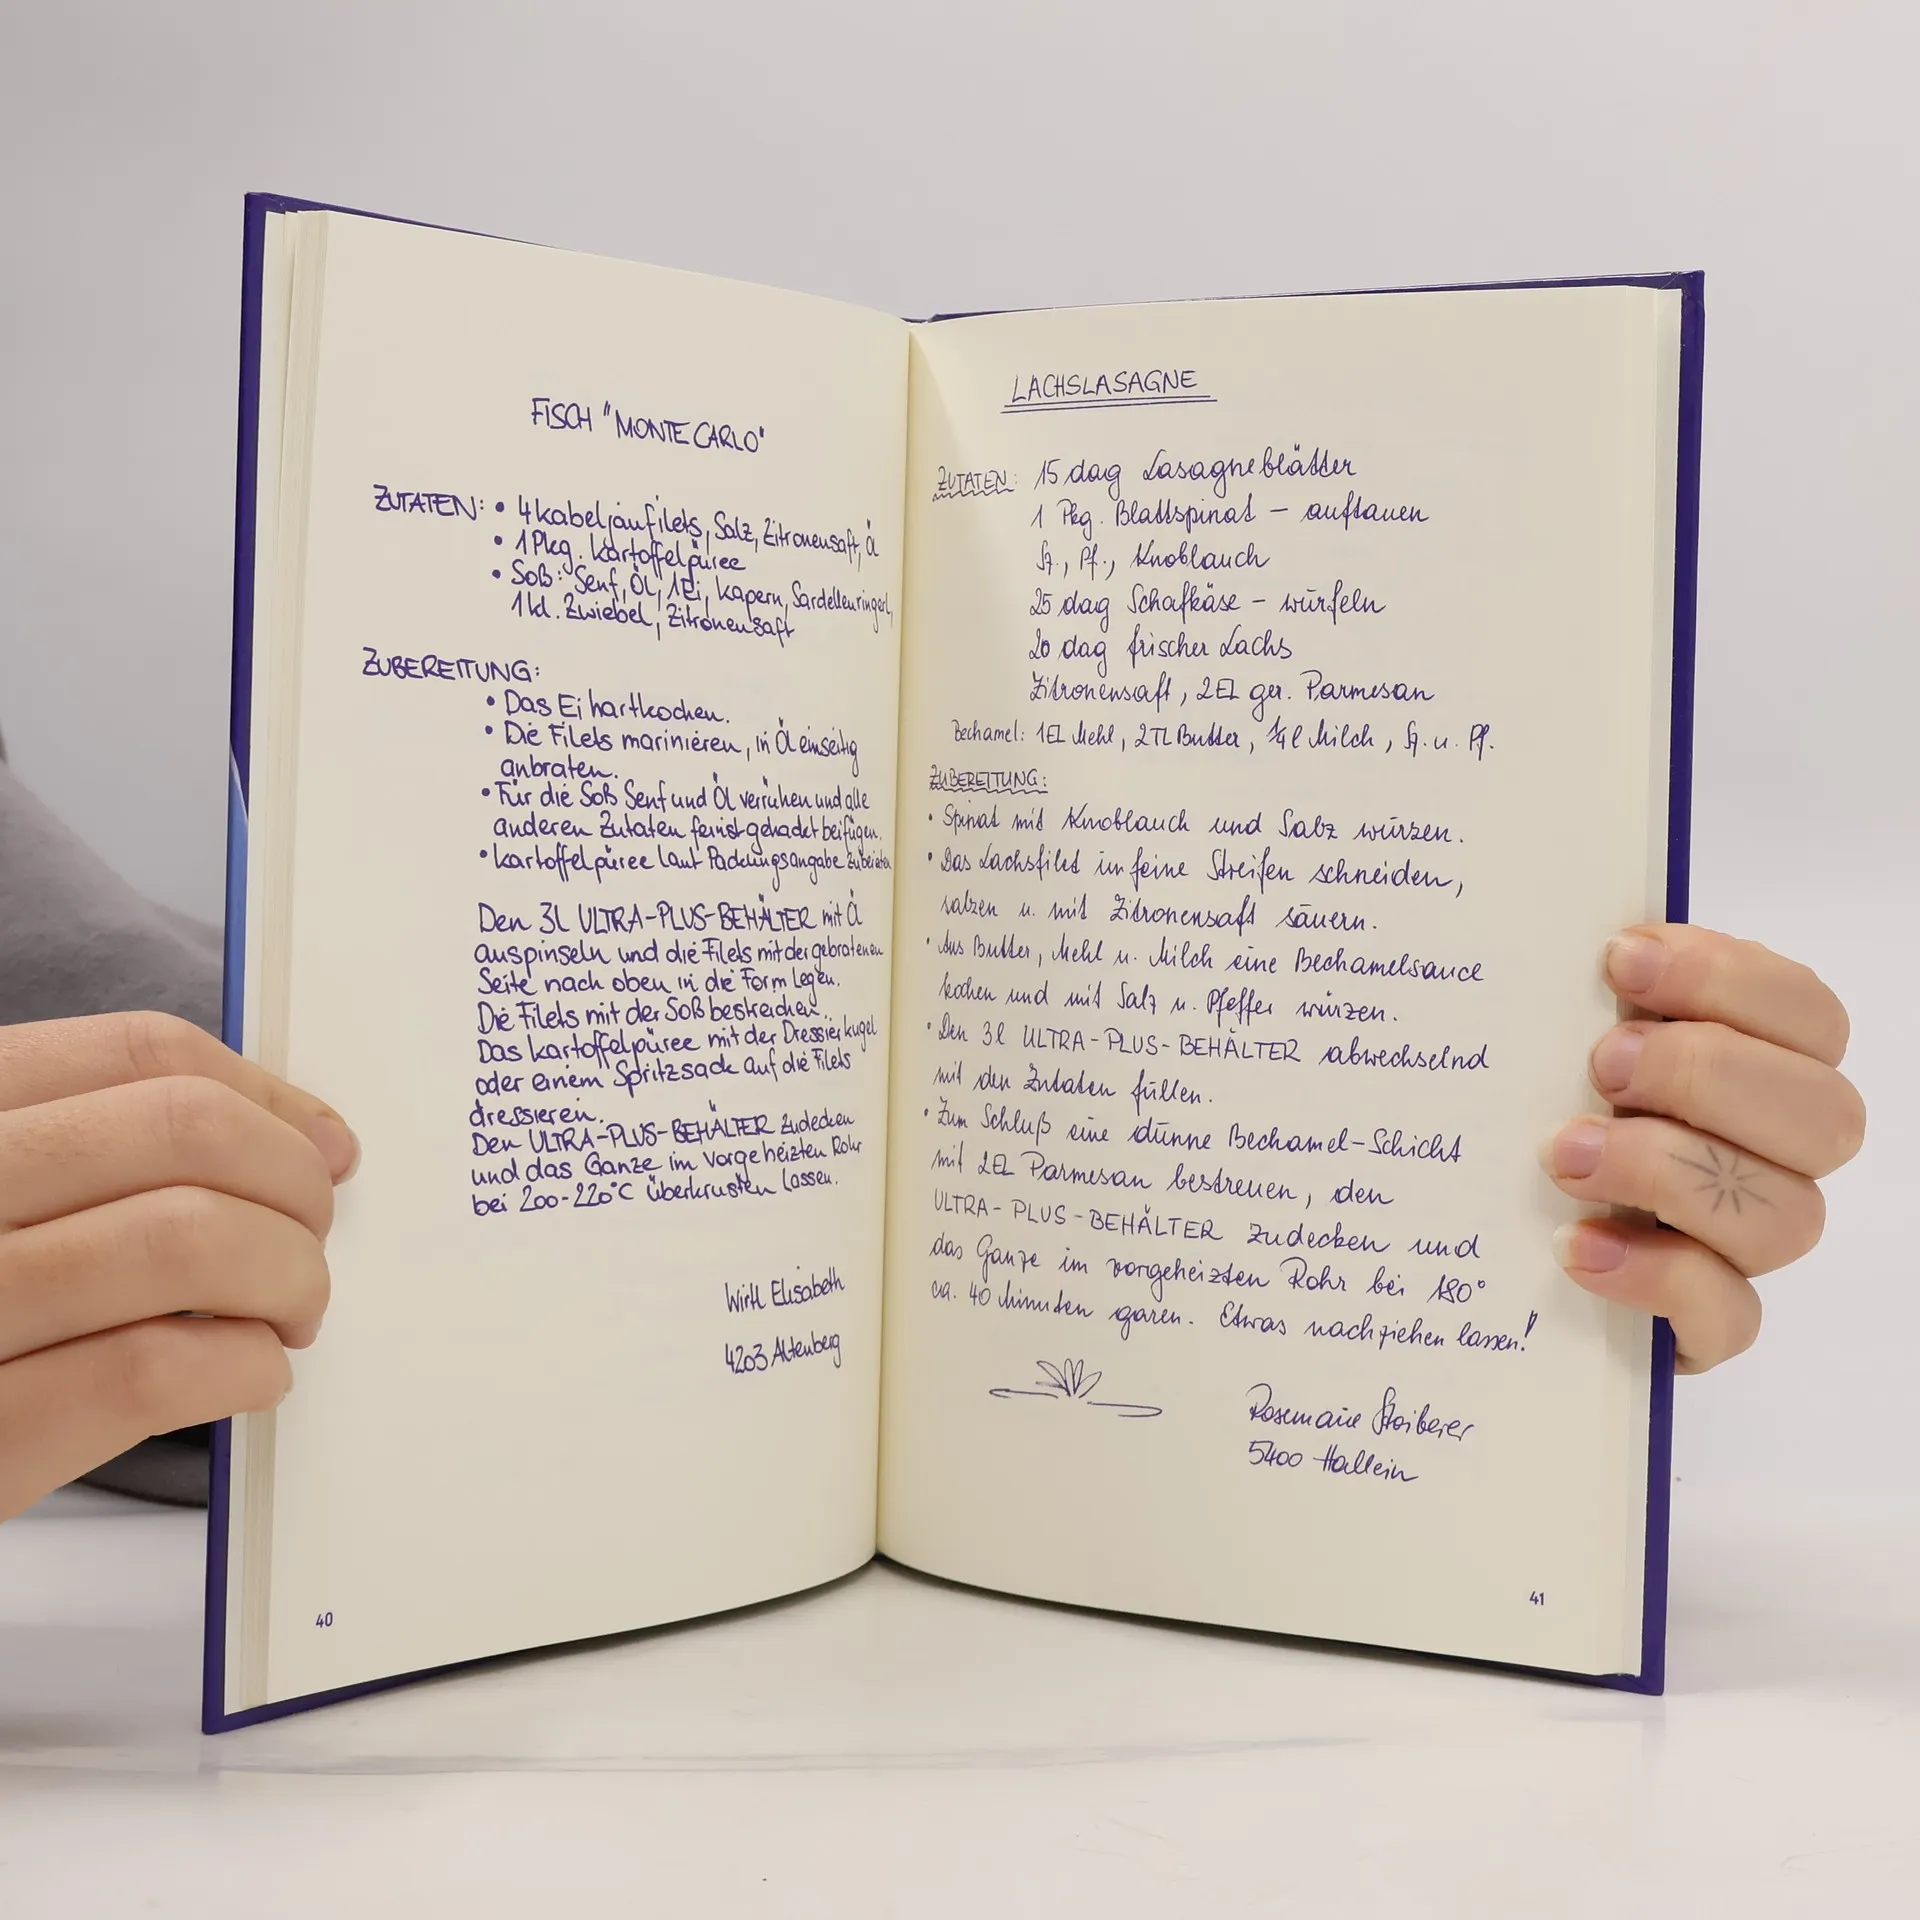 FISCH "MONTE CARLO"
ZUTATEN: • 4 Kabeljaufilets, Salz, Zitronensaft, Öl
• 1 Pkg. Kartoffelpüree
• Soß: Senf, Öl, 1 Ei, Kapern, Sardellenringerl,
1 kl. Zwiebel, Zitronensaft
ZUBEREITUNG:
• Das Ei hartkochen.
• Die Filets marinieren, in Öl einseitig
anbraten.
• Für die Soß Senf und Öl verrühen und alle
anderen Zutaten feinst gehackt beifügen.
• Kartoffelpüree laut Packungsangabe zubereiten
Den 3l ULTRA-PLUS-BEHÄLTER mit Öl
auspinseln und die Filets mit der gebratenen
Seite nach oben in die Form legen.
Die Filets mit der Soß bestreichen.
Das Kartoffelpüree mit der Dressierkugel
oder einem Spritzsack auf die Filets
dressieren.
Den ULTRA-PLUS-BEHÄLTER zudecken
und das Ganze im vorgeheizten Rohr
bei 200-220°C überkrusten lassen.
Wirtl Elisabeth
4203 Altenberg
40
LACHSLASAGNE
ZUTATEN: 15 dag Lasagneblätter
1 Pkg. Blattspinat – auftauen
S., Pf., Knoblauch
25 dag Schafkäse – würfeln
20 dag frischer Lachs
Zitronensaft, 2 EL ger. Parmesan
Bechamel: 1 EL Mehl, 2 TL Butter, 1/4 l Milch, S. u. Pf.
ZUBEREITUNG:
• Spinat mit Knoblauch und Salz würzen.
• Das Lachsfilet in feine Streifen schneiden,
salzen u. mit Zitronensaft säuern.
• Aus Butter, Mehl u. Milch eine Bechamelsauce
kochen und mit Salz u. Pfeffer würzen.
• Den 3l ULTRA-PLUS-BEHÄLTER abwechselnd
mit den Zutaten füllen.
• Zum Schluß eine dünne Bechamel-Schicht
mit 2 EL Parmesan bestreuen, den
ULTRA-PLUS-BEHÄLTER zudecken und
das Ganze im vorgeheizten Rohr bei 180°
ca. 40 Minuten garen. Etwas nachziehen lassen!
Rosemarie Stoiberer
5400 Hallein
41